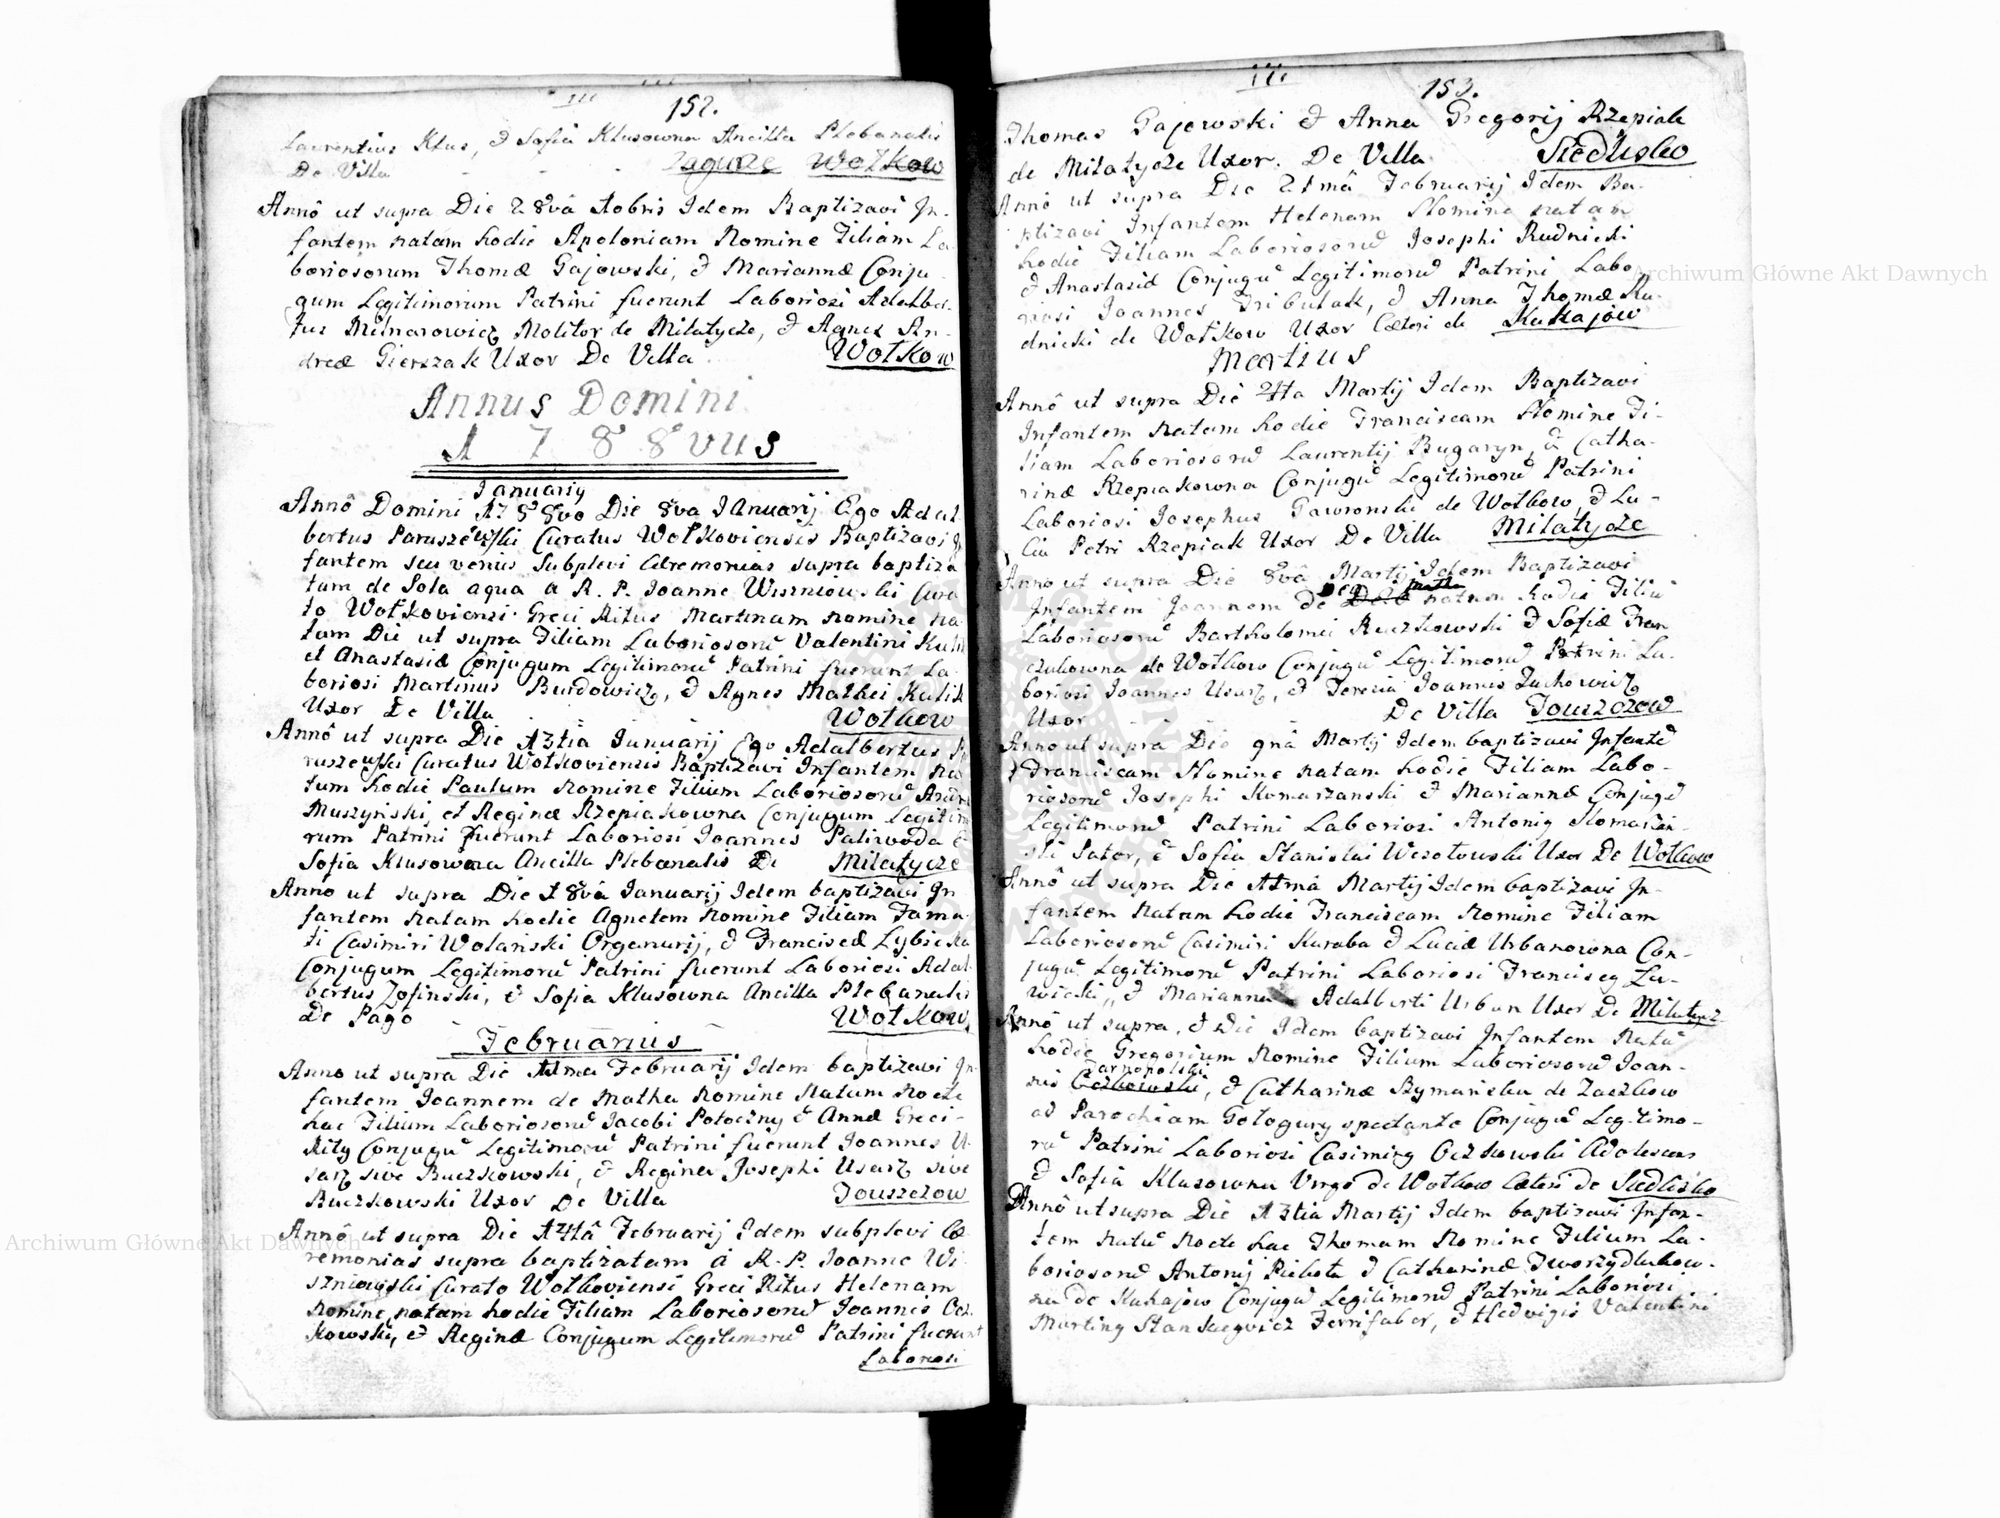 152.
Laurentius Klus, & Sofia Klusowna Ancilla Plebanalis
De Villa Zagurze Wołkow
Annô ut supra Die 28vâ Xobris Idem Baptizavi In-
fantem natam hodie Apoloniam Nomine Filiam La-
boriosorum Thomæ Gajowski, & Mariannæ Conju-
gum Legitimorum Patrini fuerunt Laboriosi Adalber-
tus Młinarowicz Molitor de Milatycze, & Agnes An-
dreæ Gierszak Uxor De Villa Wołkow
Annus Domini
1788vus
Januarij
Annô Domini 1788vo Die 8va Januarij Ego Adal
bertus Paruszewski Curatus Wołkoviensis Baptizavi
fantem seu verius Suplevi Cæremonias supra baptiza
tum de Sola aqua a R. P. Joanne Wiszniowski Cura
to Wołkoviensi Greci Ritus Martinam nomine na
tam Die ut supra Filiam Laboriosorũ Valentini Kulik
et Anastasiæ Conjugum Legitimorũ Patrini fuerunt La-
boriosi Martinus Burdowicz, & Agnes Mathei Kulik
Uxor De Villa Wołkow
Annô ut supra Die 13tia Januarij Ego Adalbertus Pa
ruszewski Curatus Wołkoviensis Baptizavi Infantem na
tum hodie Paulum Nomine Filium Laboriosorũ
Muszyński, et Reginæ Rzepiakowna Conjugum Legitimo
rum Patrini fuerunt Laboriosi Joannes Paliwoda &
Sofia Klusowna Ancilla Plebanalis De Milatycze
Anno ut supra Die 18vâ Januarij Idem baptizavi In
fantem natam hodie Agnetem Nomine Filiam Fama
ti Casimiri Wolański Organarij, & Franciscæ Lybicka
Conjugum Legitimorũ Patrini fuerunt Laboriosi Adal
bertus Zofinski, & Sofia Klusowna Ancilla Plebanalis
De Pago Wołkow
Februarius
Anno ut supra Die 11ma Februarij Idem baptizavi In
fantem Joannem de Matha Nomine Natum Nocte
hac Filium Laboriosorũ Jacobi Potoczny & Annæ Greci-
Ritg Conjugũ Legitimorũ Patrini fuerunt Joannes U-
sarz sive Buczkowski, & Regina Josephi Usarz sive
Buczkowski Uxor De Villa Touszczow
Annô ut supra Die 14tâ Februarij Idem subplevi Cæ
remonias supra baptizatam á R. P. Joanne Wi-
szniowski Curato Wołkoviensi Greci Ritus Helenam
Nomine natam hodie Filiam Laboriosorũ Joannis Ocz
kowski, & Reginæ Conjugum Legitimorũ Patrini fuerunt
Laboriosi
153.
Thomas Gajowski & Anna Gregorij Rzepiak
de Milatycze Uxor. De Villa Siedlisko
Annô ut supra Die 21mâ Februarij Idem Ba-
ptizavi Infantem Helenam Nomine natam
hodie Filiam Laboriosorũ Josephi Rudnicki
& Anastasiæ Conjugũ Legitimorũ Patrini Labo-
riosi Joannes Tribulak, & Anna Thomæ Ru-
dnicki de Wołkow Uxor Cæteri de Kukajow
Martius
Annô ut supra Die 4ta Martij Idem Baptizavi
Infantem Natam hodie Franciscam Nomine Fi-
liam Laboriosorũ Laurentij Bugaryn, & Catha-
rinæ Rzepiakowna Conjugũ Legitimorũ Patrini
Laboriosi Josephus Gawronski de Wołkow, & Lu-
cia Petri Rzepiak Uxor De Villa Milatycze
Anno ut supra Die 8vâ Martij Idem Baptizavi
Infantem Joannem de Deo natum hodie Filiũ
Laboriosorũ Bartholomei Buczkowski & Sofiæ Fran
czukowna de Wołkow Conjugũ Legitimorũ Patrini La-
boriosi Joannes Usarz, & Teresia Joannis Juchowicz
Uxor De Villa Touszczow
Anno ut supra Die 9nâ Martij Idem baptizavi Infantẽ
Franciscam Nomine natam hodie Filiam Labo-
riosorũ Josephi Komarzanski & Mariannæ Conjugũ
Legitimorũ Patrini Laboriosi Antonig Komarzan-
ski Sator, & Sofia Stanislai Wesołowski Uxor De Wołkow
Annô ut supra Die 11mâ Martij Idem baptizavi In-
fantem Natam hodie Franciscam Nomine Filiam
Laboriosorũ Casimiri Karaba & Luciæ Urbanowna Con-
jugũ Legitimorũ Patrini Laboriosi Franciscg Za-
wicki, & Marianna Adalberti Urban Uxor De Milatycz
Annô ut supra, & Die Idem baptizavi Infantem Natũ
hodie Gregorium Nomine Filium Laboriosorũ Joan-
nis Tarnopolski, & Catharinæ Szymańska de Zaczkow
ad Parochiam Gołogury spectante Conjugũ Legitimo-
rũ Patrini Laboriosi Casimirg Oczkowski Adolescens
& Sofia Klusowna Virgo de Wołkow Cæteri de Siedlisko
Annô ut supra Die 13tia Martij Idem baptizavi Infan-
tem Natũ Nocte hac Thomam Nomine Filium La-
boriosorũ Antonij Piekota & Catharinæ Tworzydlukow-
na de Kukajow Conjugũ Legitimorũ Patrini Laboriosi
Marting Stankiewicz Ferrifaber, & Hedvigis Valentini
Archiwum Główne Akt Dawnych
Archiwum Główne Akt Dawnych